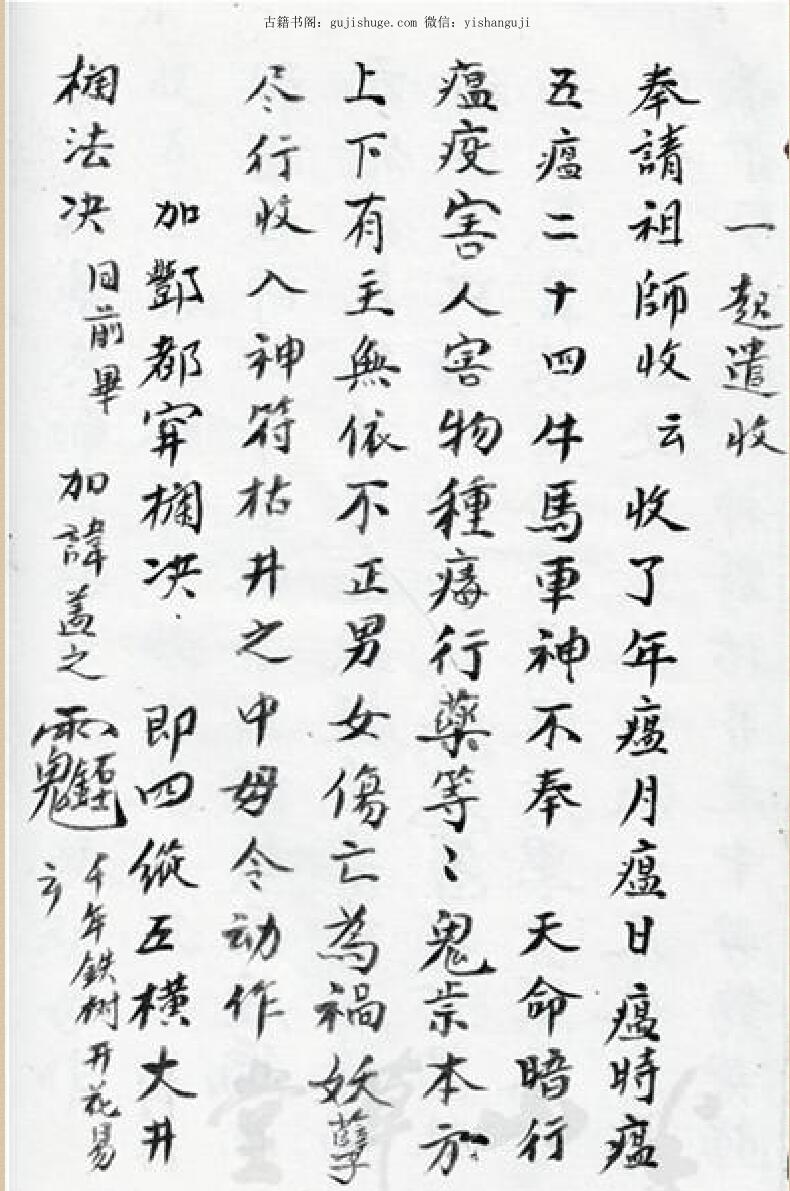 古籍书阁：gujishuge.com 微信：yishanguji
一起遣收
奉請祖師收云收了年瘟月瘟日瘟時瘟
五瘟二十四牛馬車神不奉天命暗行
瘟疫害人害物種痘行藥等〻鬼祟本方
上下有主無依不正男女傷亡為禍妖孽
尽行收入神符枯井之中毋令动作
加酆都穽欄决即四縱五橫大井
欄法决同前畢加諱盖之 千年鉄树开花易